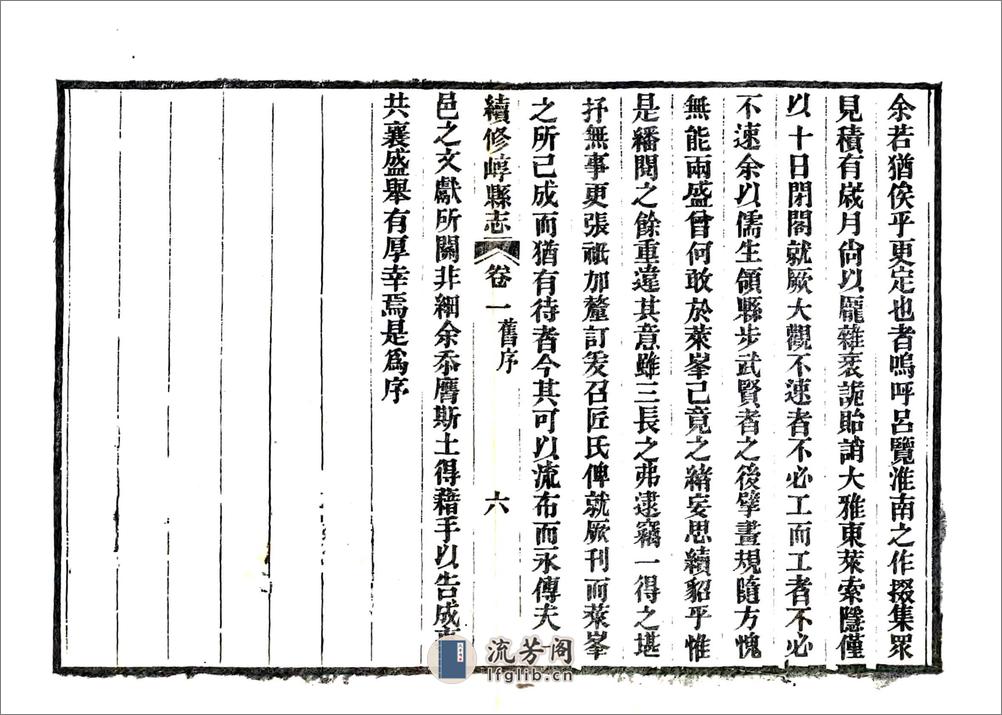 余若猶俟乎更定也者嗚呼呂覽淮南之作掇集眾
見積有歲月尙以龐雜袤詭貽誚大雅東萊索隱僅
以十日閉閣就厥大觀不速者不必工而工者不必
不速余以儒生領縣步武賢者之後擘畫規隨方愧
無能兩盛曾何敢於萊峯已竟之緒妄思續貂乎惟
是繙閱之餘重違其意雖三長之弗逮竊一得之堪
抒無事更張祇加釐訂爰召匠氏俾就厥刊而萊峯
之所已成而猶有待者今其可以流布而永傳夫
續修崞縣志 卷一 舊序 六
邑之文獻所關非細余忝膺斯土得藉手以告成
共襄盛舉有厚幸焉是為序
流芳阁
lfglib.cn